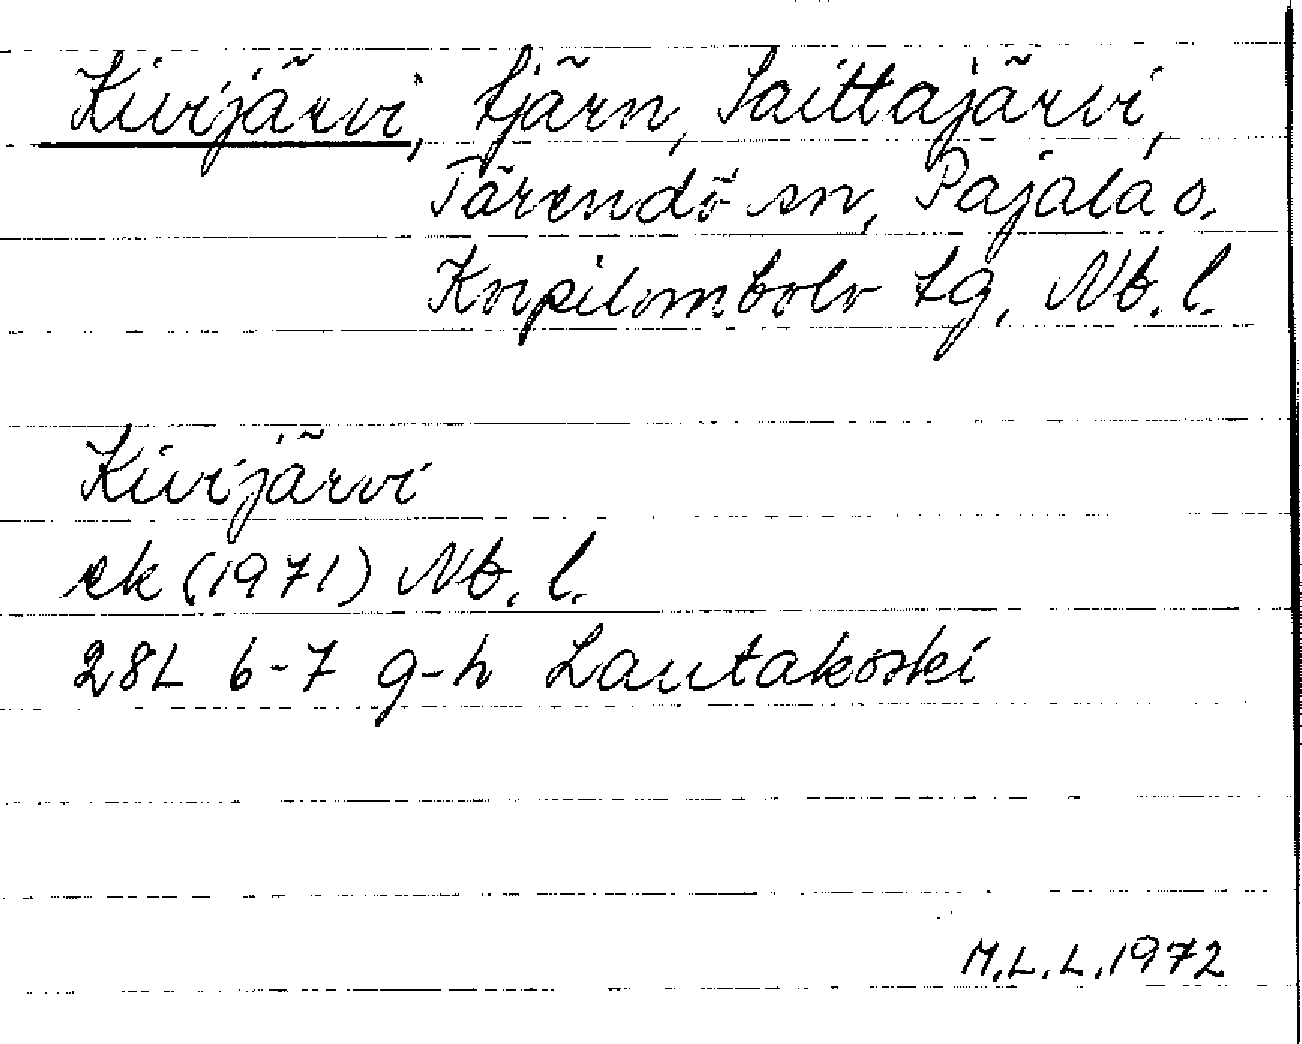 Kivijärvi, tjärn, Saittajärvi,
Tärendö sn, Pajala o.
Korpilombolo tg, Nb. l.
Kivijärvi
ek (1971) Nb. l.
28L 6-7 g-h Lautakoski
M.L.L. 1972